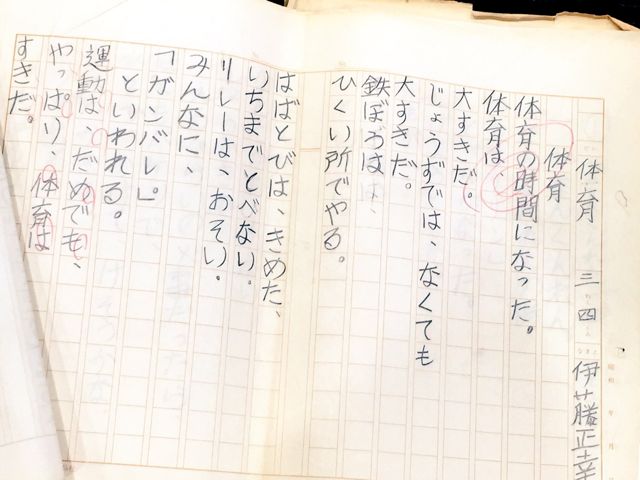 体育 三 四 伊藤正幸
体育
体育の時間になった。
体育は、
大すきだ。
じょうずでは、なくても
大すきだ。
鉄ぼうは、
ひくい所でやる。
はばとびは、きめた、
いちまでとべない。
リレーは、おそい。
みんなに、
「ガンバレ。」
といわれる。
運動は、だめでも、
やっぱり、体育は
すきだ。